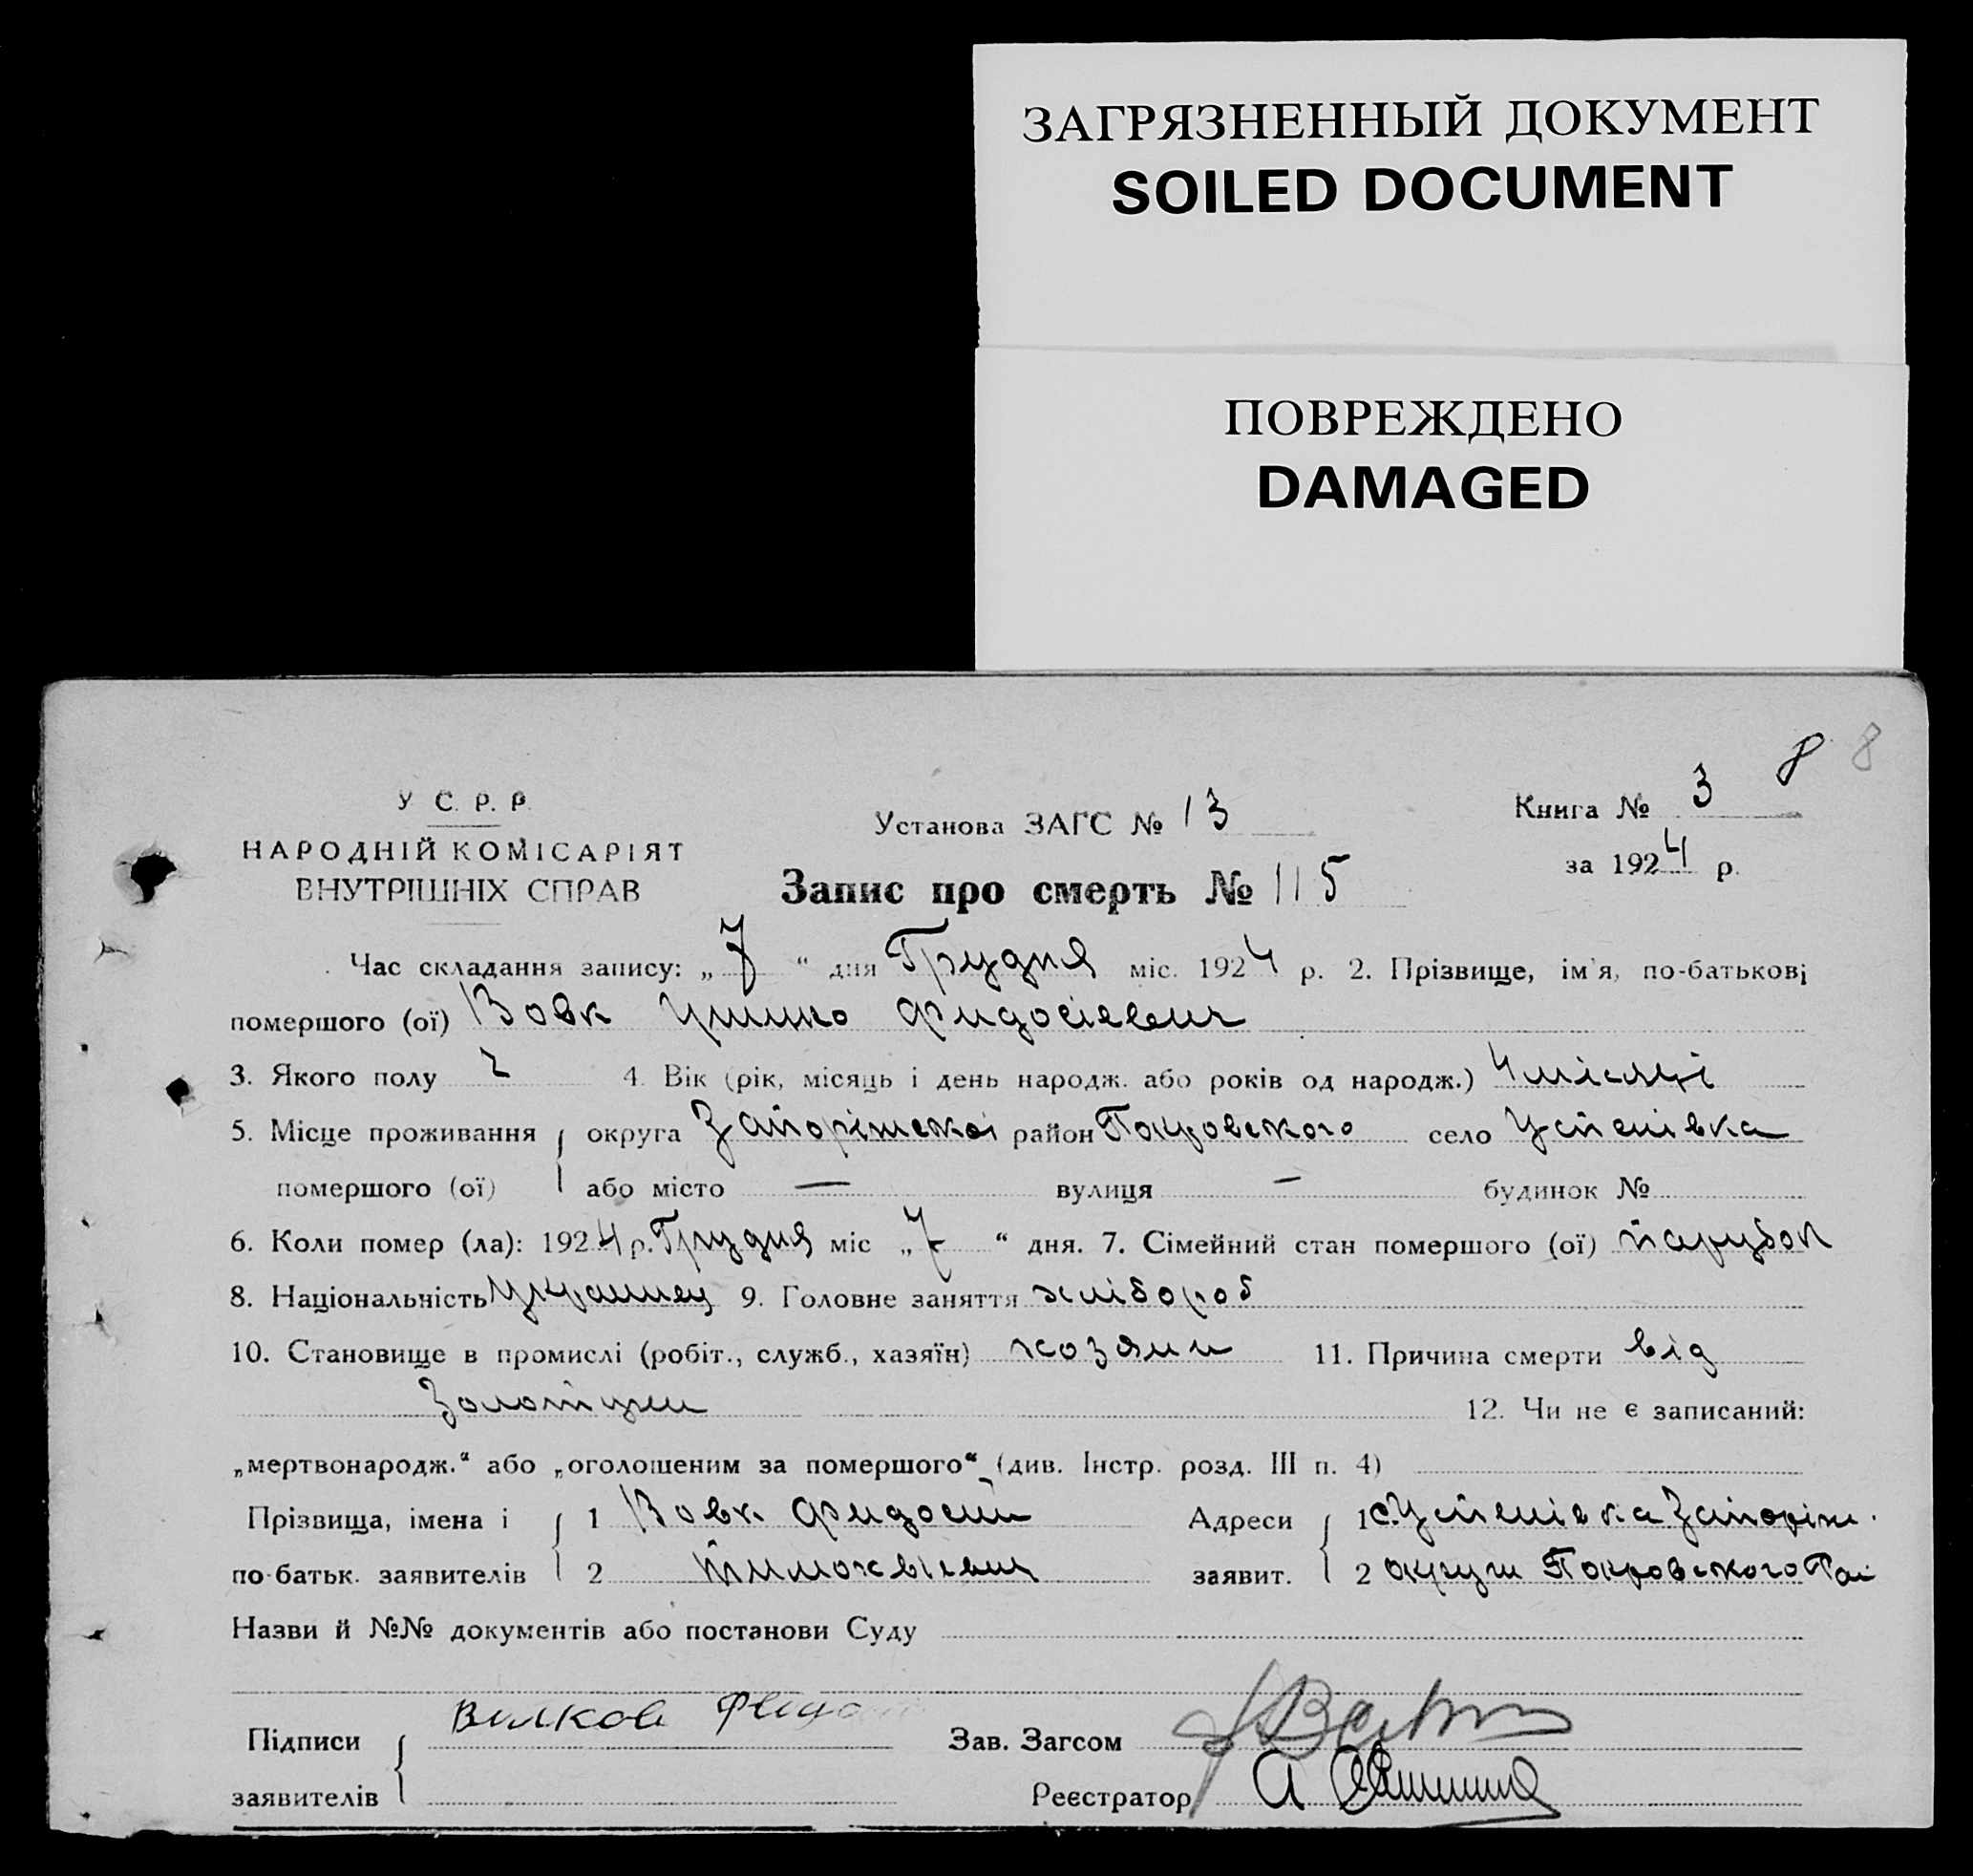 ЗАГРЯЗНЕННЫЙ ДОКУМЕНТ
SOILED DOCUMENT
ПОВРЕЖДЕНО
DAMAGED
8 8
У С. Р. Р.
НАРОДНІЙ КОМІСАРІЯТ
ВНУТРІШНІХ СПРАВ
Установа ЗАГС № 13
Запис про смерть № 115
Книга № 3
за 1924 р.
Час складання запису: „7“ дня Грудня міс. 1924 р. 2. Прізвище, ім'я, по-батькові
помершого (ої) Вовк Фидосіевич
3. Якого полу 4. Вік (рік, місяць і день народж. або років од народж.) 4 місяці
5. Місце проживання округа Запоріжскоі район Покровского село Успенівка
помершого (ої) або місто — вулиця — будинок №
6. Коли помер (ла): 1924 р. Грудня міс „7“ дня. 7. Сімейний стан помершого (ої) парубок
8. Національність Украинец 9. Головне заняття хлібороб
10. Становище в промислі (робіт., служб., хазяїн) хозяин 11. Причина смерти від
Золотухи 12. Чи не є записаний:
„мертвонародж.“ або „оголошеним за помершого“ (див. Інстр. розд. III п. 4)
Прізвища, імена і 1 Вовк Фидосий Адреси 1 с. Успенівка Запоріж.
по-батьк. заявителів 2 Тимохвіевич заявит. 2 округи Покровского Рай
Назви й №№ документів або постанови Суду
Підписи Зав. Загсом
заявителів Реєстратор